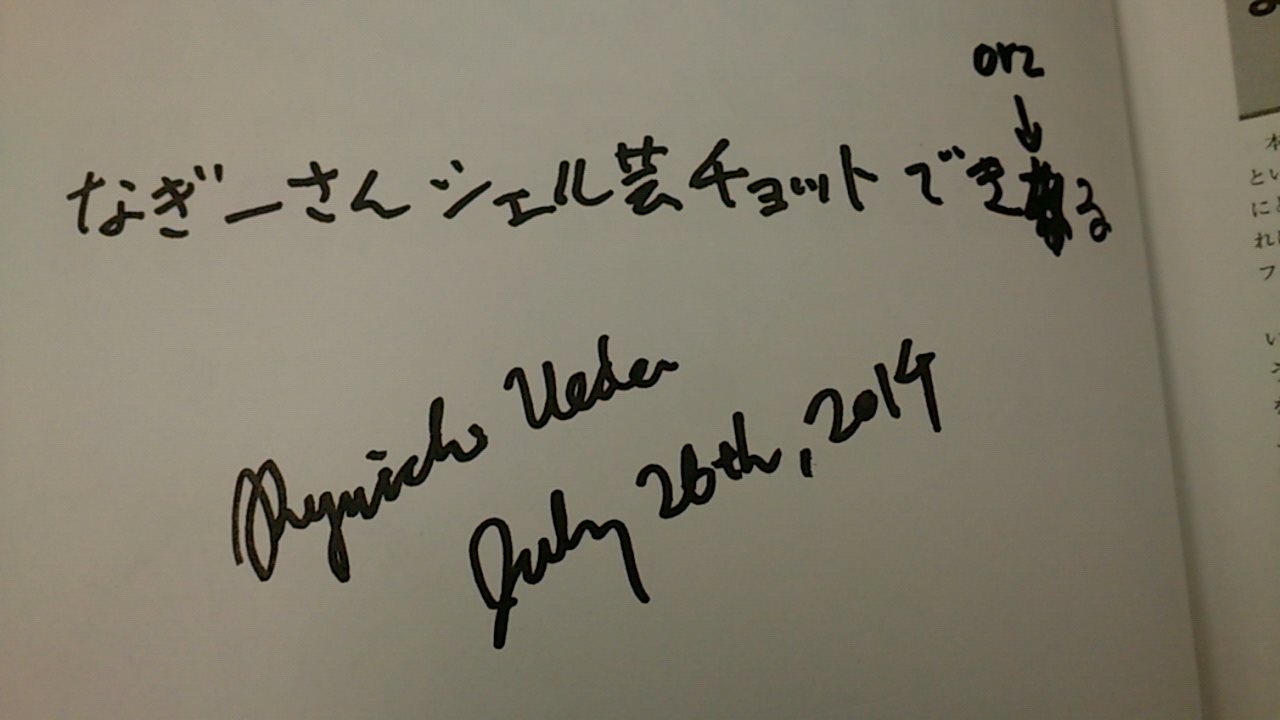 orz
↓
なぎーさんシェル芸チョットできる
Ryuichi Ueda
July 26th, 2014
本
とい
に
れ
フ
い